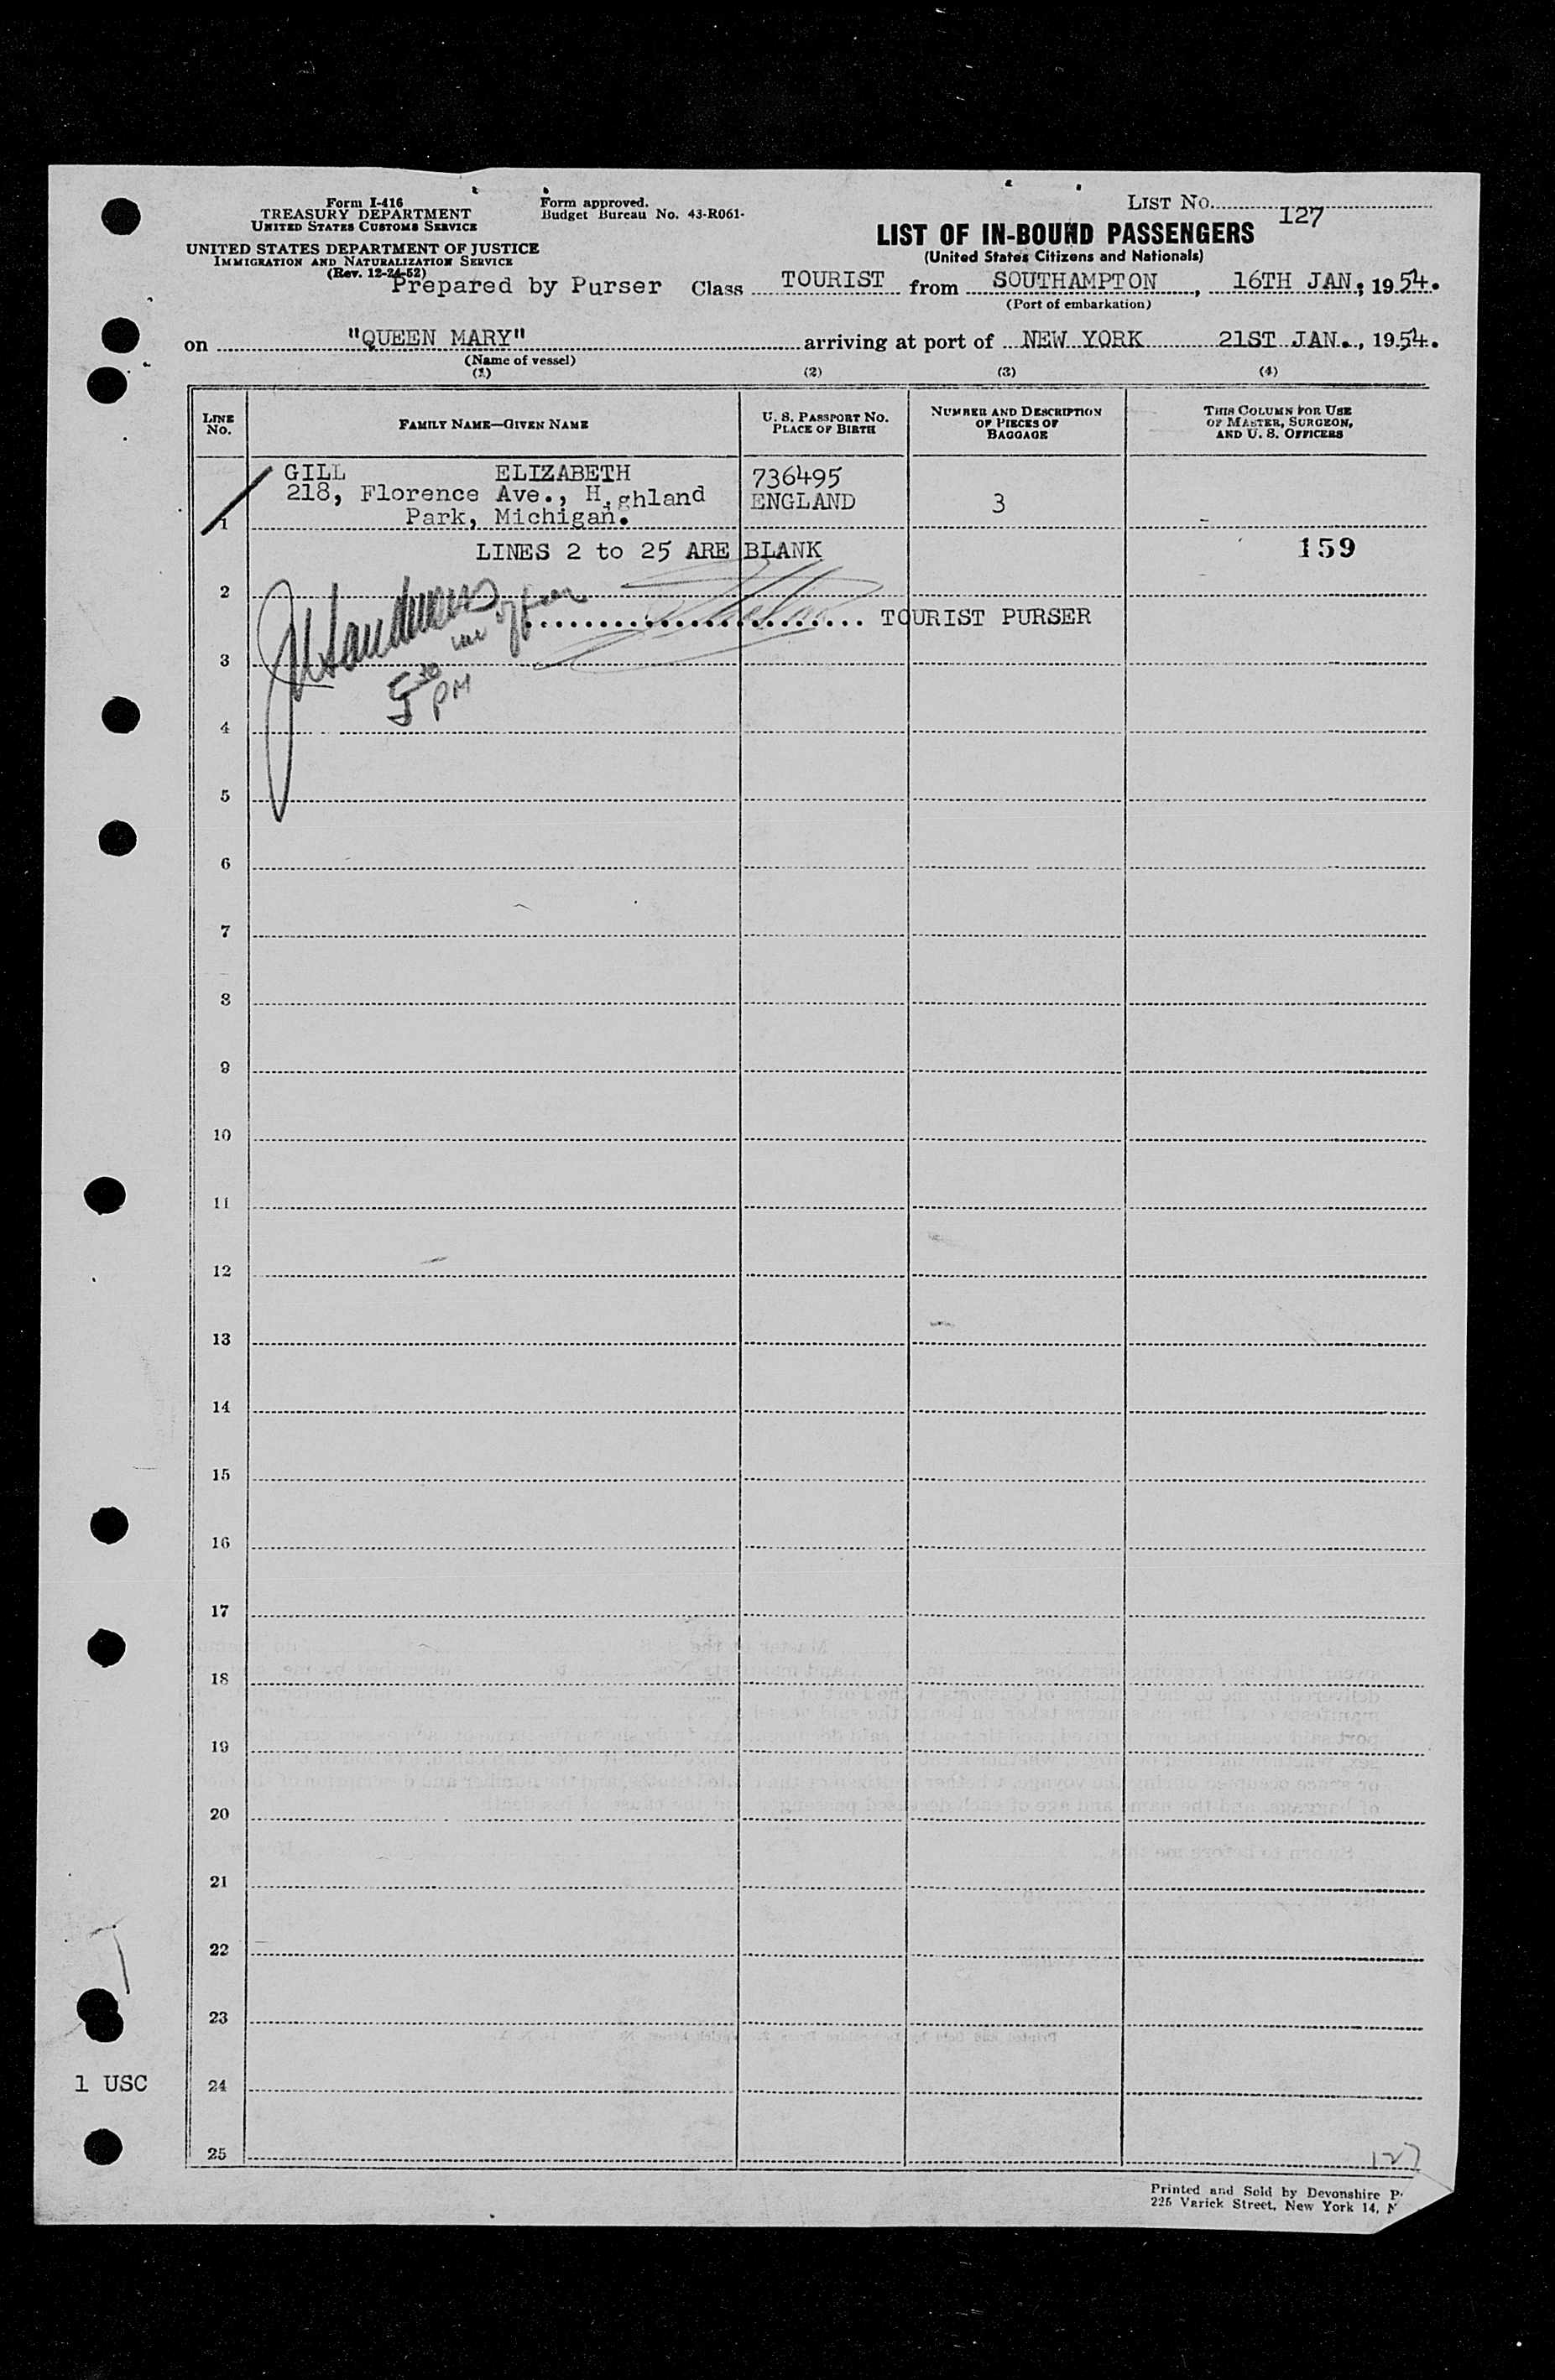 Form I-416
TREASURY DEPARTMENT
UNITED STATES CUSTOMS SERVICE
UNITED STATES DEPARTMENT OF JUSTICE
IMMIGRATION AND NATURALIZATION SERVICE
(Rev. 12-24-52)
Form approved.
Budget Bureau No. 43-R061-
LIST No. 127
LIST OF IN-BOUND PASSENGERS
(United States Citizens and Nationals)
Prepared by Purser Class TOURIST from SOUTHAMPTON, 16TH JAN; 1954.
(Port of embarkation)
on "QUEEN MARY" arriving at port of NEW YORK 21ST JAN., 1954.
(Name of vessel)
(1) (2) (3) (4)
LINE No. FAMILY NAME—GIVEN NAME U. S. PASSPORT No. PLACE OF BIRTH NUMBER AND DESCRIPTION OF PIECES OF BAGGAGE THIS COLUMN FOR USE OF MASTER, SURGEON, AND U. S. OFFICERS
GILL ELIZABETH 736495
218, Florence Ave., H.ghland ENGLAND 3
1 Park, Michigan.
LINES 2 to 25 ARE BLANK 159
2
TOURIST PURSER
3
5 30 PM
4
5
6
7
8
9
10
11
12
13
14
15
16
17
18
19
20
21
22
23
1 USC 24
25 127
Printed and Sold by Devonshire P
225 Varick Street, New York 14, N